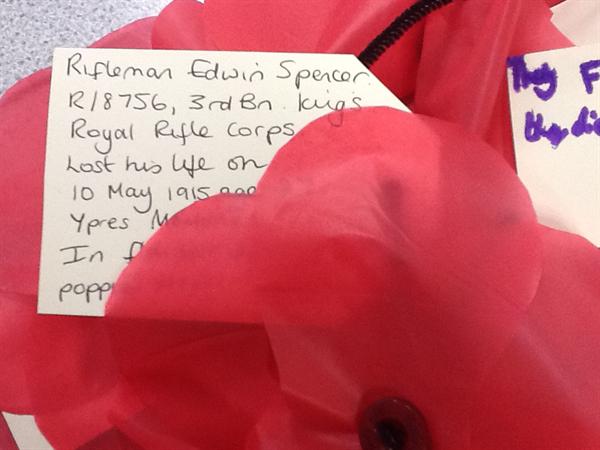 Rifleman Edwin Spencer.
R/8756, 3rd Bn. King's
Royal Rifle Corps
Lost his life on
10 May 1915
Ypres
In
They
they